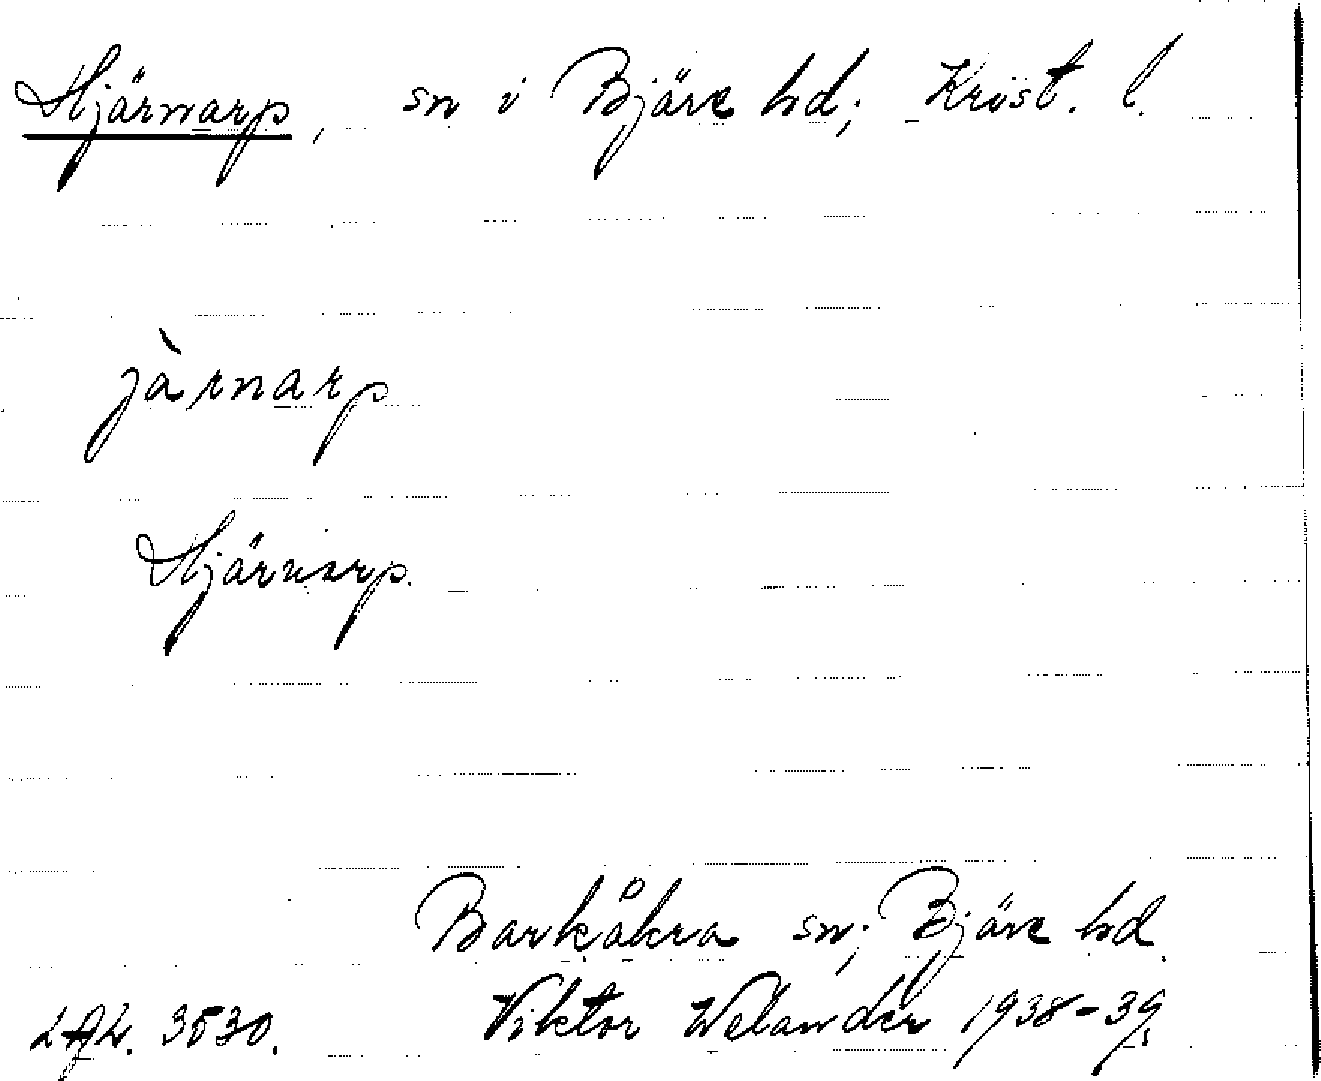 Hjärnarp, sn i Bjäre hd; Krist. l.
jàrnarp
Hjärnarp.
Barkåkra sn; Bjäre hd.
LAL. 3530. Viktor Welander 1938-39.